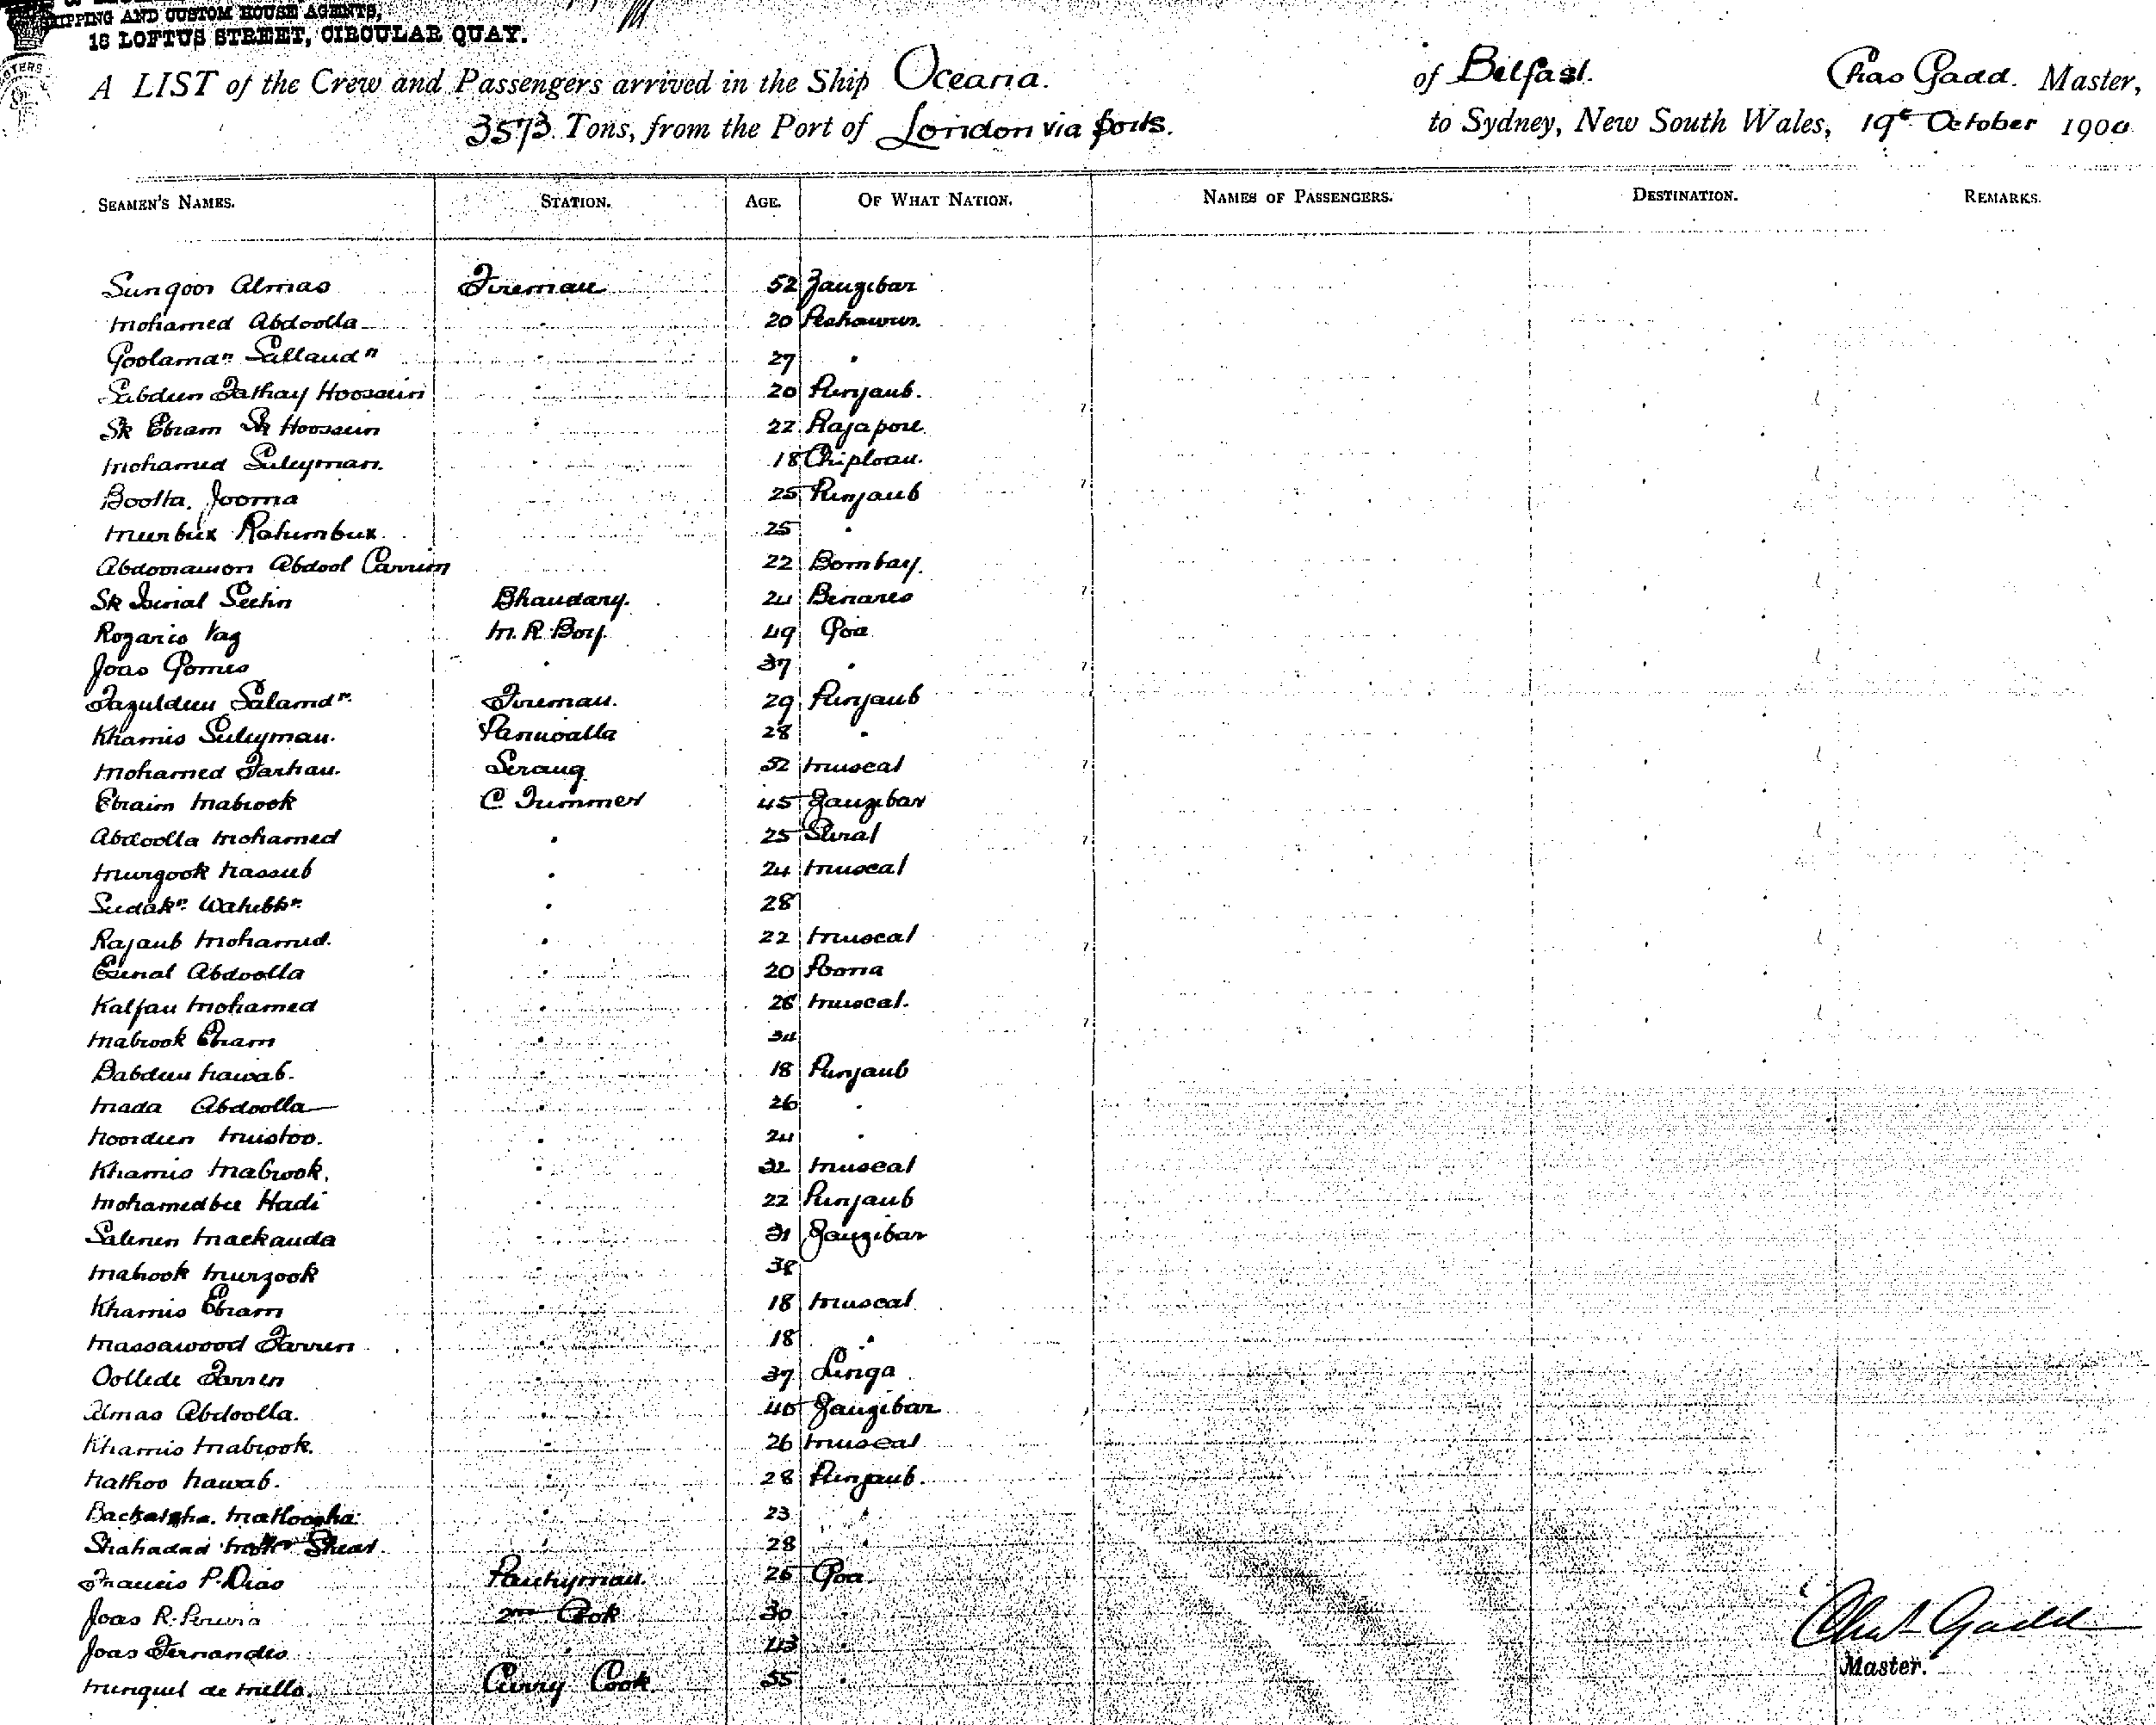 SHIPPING AND CUSTOM HOUSE AGENTS,
18 LOFTUS STREET, CIRCULAR QUAY.
A LIST of the Crew and Passengers arrived in the Ship Oceana. of Belfast. Chas Gadd. Master,
3573 Tons, from the Port of London via ports. to Sydney, New South Wales, 19t October 1900
SEAMEN'S NAMES. STATION. AGE. OF WHAT NATION. NAMES OF PASSENGERS. DESTINATION. REMARKS.
Sungoor Almas Fireman 52 Zanzibar
Mohamed Abdoolla " 20 Peshawur.
Goolaman Sallaudn " 27 "
Sabdeen Fathay Hoosein " 20 Punjaub.
Sk Ebram Sk Hoosein " 22 Rajapore.
Mohamed Suleyman. " 18 Chiploan.
Bootta Jooma 25 Punjaub
Meerbux Rahimbux. 25 "
Abdool Carrim 22 Bombay.
Sk Seehn Bhandary. 24 Benares
Rozario Vaz M. R. Boy. 49 Goa
Joao Gomes " 37 "
Fazuldeen Salamdn. Fireman. 29 Punjaub
Khamis Suleyman. Paniwalla 28 "
Mohamed Farhan. Serang 52 Muscat
Ebraim Mabrook C Trimmer 45 Zanzibar
Abdoolla Mohamed " 25 Surat
Murzook Nassub " 24 Muscat
Sudakn. " 28
Rajaub Mohamed. " 22 Muscat
Esmal Abdoolla " 20 Poona
Kalfan Mohamed " 28 Muscat.
Mabrook Ebram " 34
Babdeen Nawab. " 18 Punjaub
Mada Abdoolla " 26 "
Noordeen Mustoo. " 24 "
Khamis Mabrook. " 32 Muscat
Mohamedbee Hadi " 22 Punjaub
Salmin Mackauda " 31 Zanzibar
Mabook Murzook " 38
Khamis Ebram " 18 Muscat
Massawood Farren " 18 "
Oollede Farren " 37 Linga
Almas Abdoolla. " 40 Zanzibar
Khamis Mabrook. " 26 Muscat
Nathoo Nawab. " 28 Punjaub.
" 23 "
Shahadad " 28 "
Francis P. Dias Pantryman. 26 Goa.
Joao R. Pereira 2nd Cook 30 "
Joao Fernandes " 43 "
Minguel de Mello. Curry Cook. 55 "
Chas Gadd
Master.